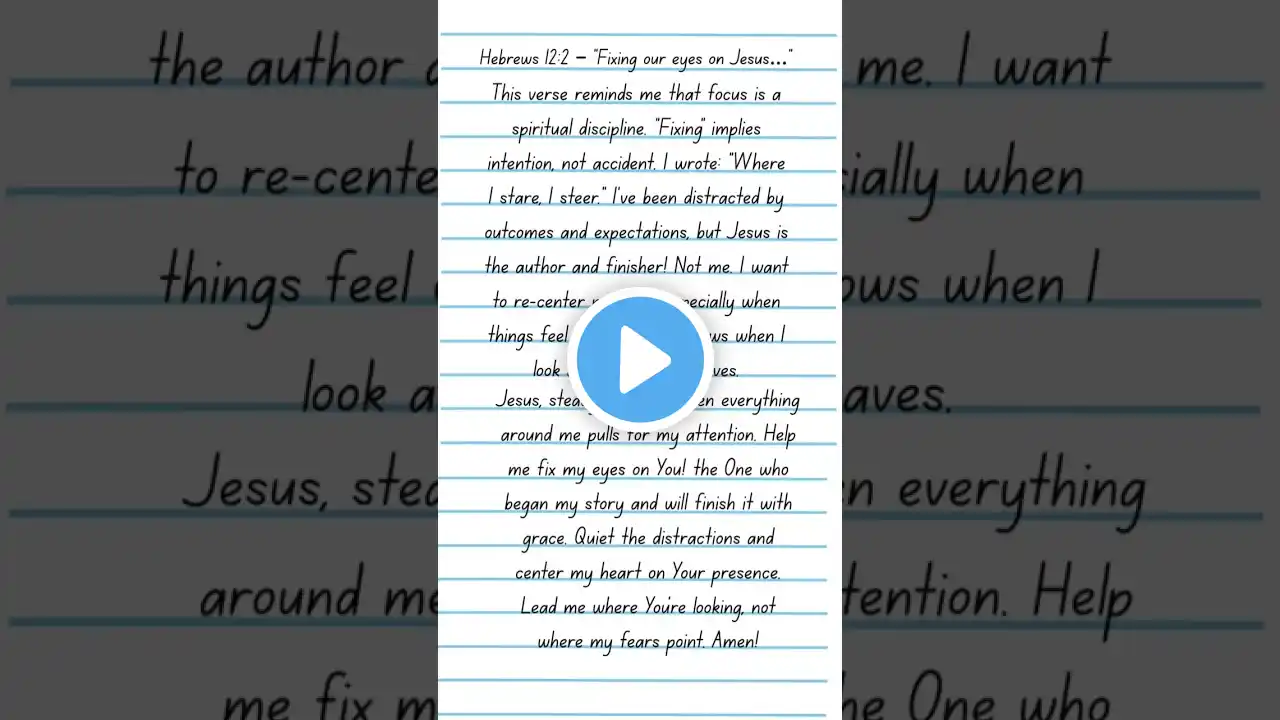 Hebrews 12:2 – "Fixing our eyes on Jesus..."
This verse reminds me that focus is a
spiritual discipline. "Fixing" implies
intention, not accident. I wrote: "Where
I stare, I steer." I've been distracted by
outcomes and expectations, but Jesus is
the author and finisher! Not me. I want
to re-center when
things feel when I
look
Jesus, everything
around me pulls for my attention. Help
me fix my eyes on You! the One who
began my story and will finish it with
grace. Quiet the distractions and
center my heart on Your presence.
Lead me where You're looking, not
where my fears point. Amen!